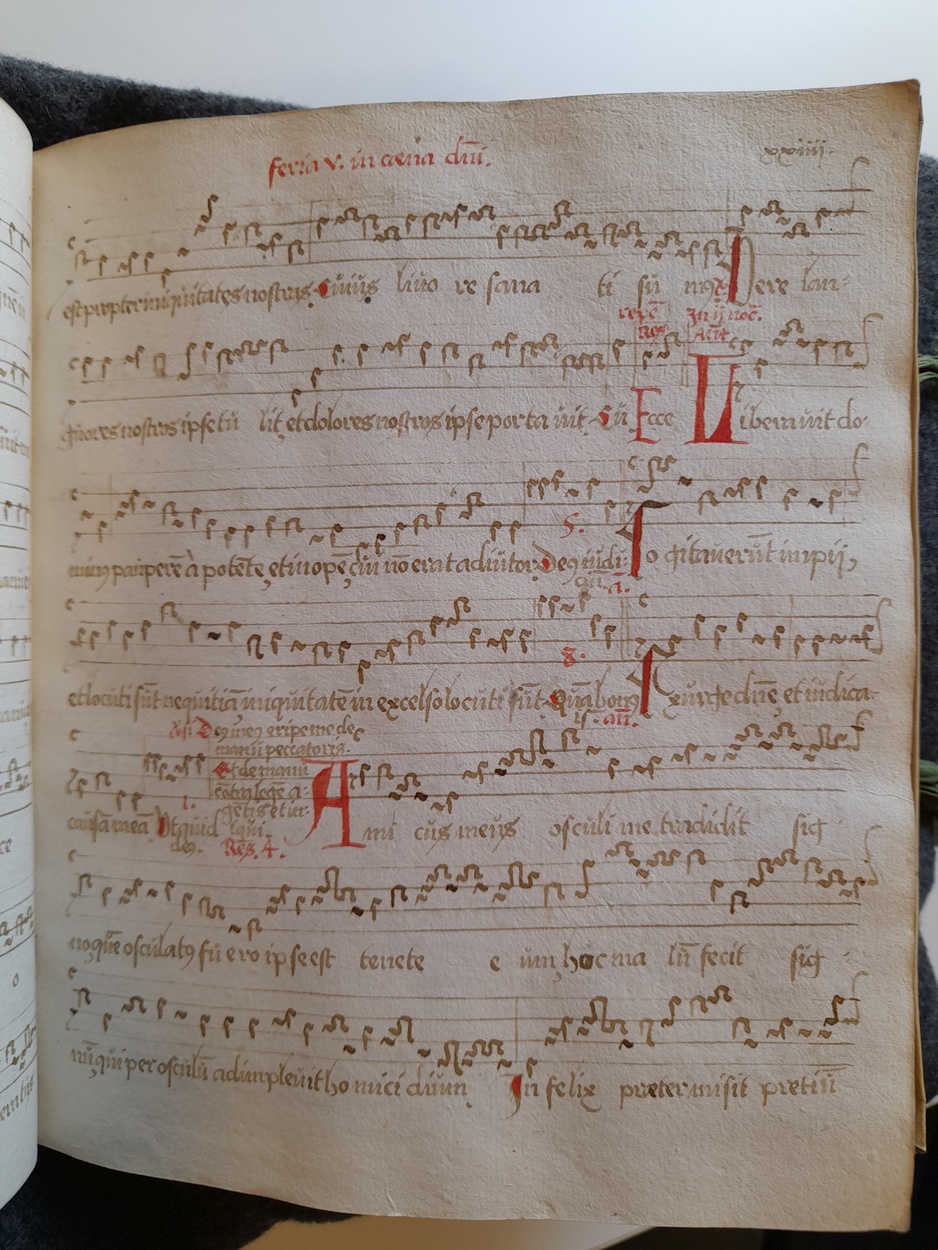 feria v. in cœna dñi.
xxiiii.
est propter iniquitates nostras. Cuius livo re sana ti su mus. Vere lan-
guores nostros ipse tu lit, et dolores nostros ipse porta vit. Cu Ecce
Res.
In ij noc.
Añt.
Liberavit do-
minus pauperē à potēte, et inopē, cui nō erat adiutor. Deus iudi-
5.
ā.
Co gitaverūt impij,
et locuti sūt nequitiā iniquitatē in excelso locuti sūt. Quā bonus
8.
is.
añ.
Exurge dñe et iudica
causa meā. Ut quid
1.
Deus meus eripe me de
manu peccatoris.
Et de manu
cōtra legē a-
gētis et in-
iqui.
Res. 4.
A mi cus meus osculi me tradidit sig
no, quē osculatus fu ero ipse est tenete e um, hoc ma lū fecit sig
nū, qui per osculū adimplevit ho mici dium In felix prætermisit pretiū